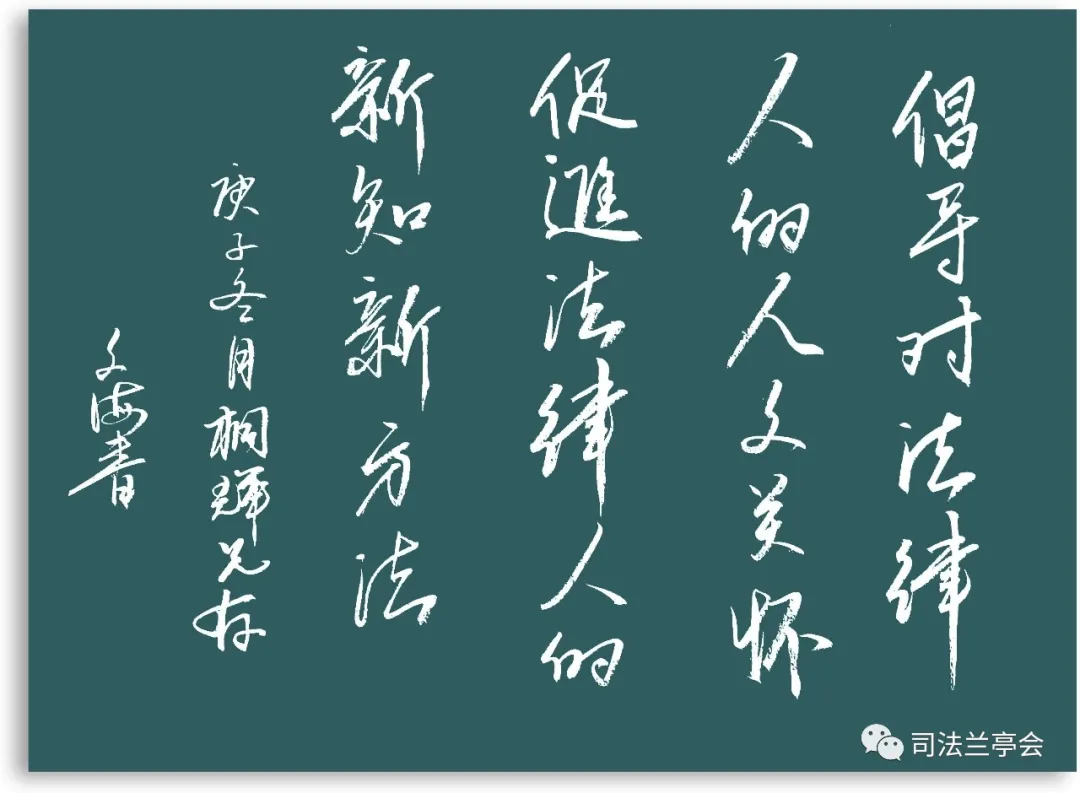 倡导对法律
人的人文关怀
促進法律人的
新知新方法
庚子冬月桐辉兄存
文海书
司法兰亭会